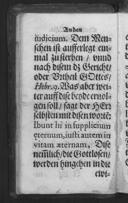 Anden
iudicium. Dem Men-
schen ist aufferlegt ein-
mal zusterben / vnnd
nach disem dz Gericht /
oder Vrtheil GOttes /
Hebr. 9. Was aber wei-
ter auff dise beyde erfol-
gen soll / sagt der HErr
selbsten mit disen worte:
Ibunt hi in supplicium
æternum, iusti autem in
vitam æternam, Dise
nemlich / die Gottlosen /
werden hingehen in die
ewi-